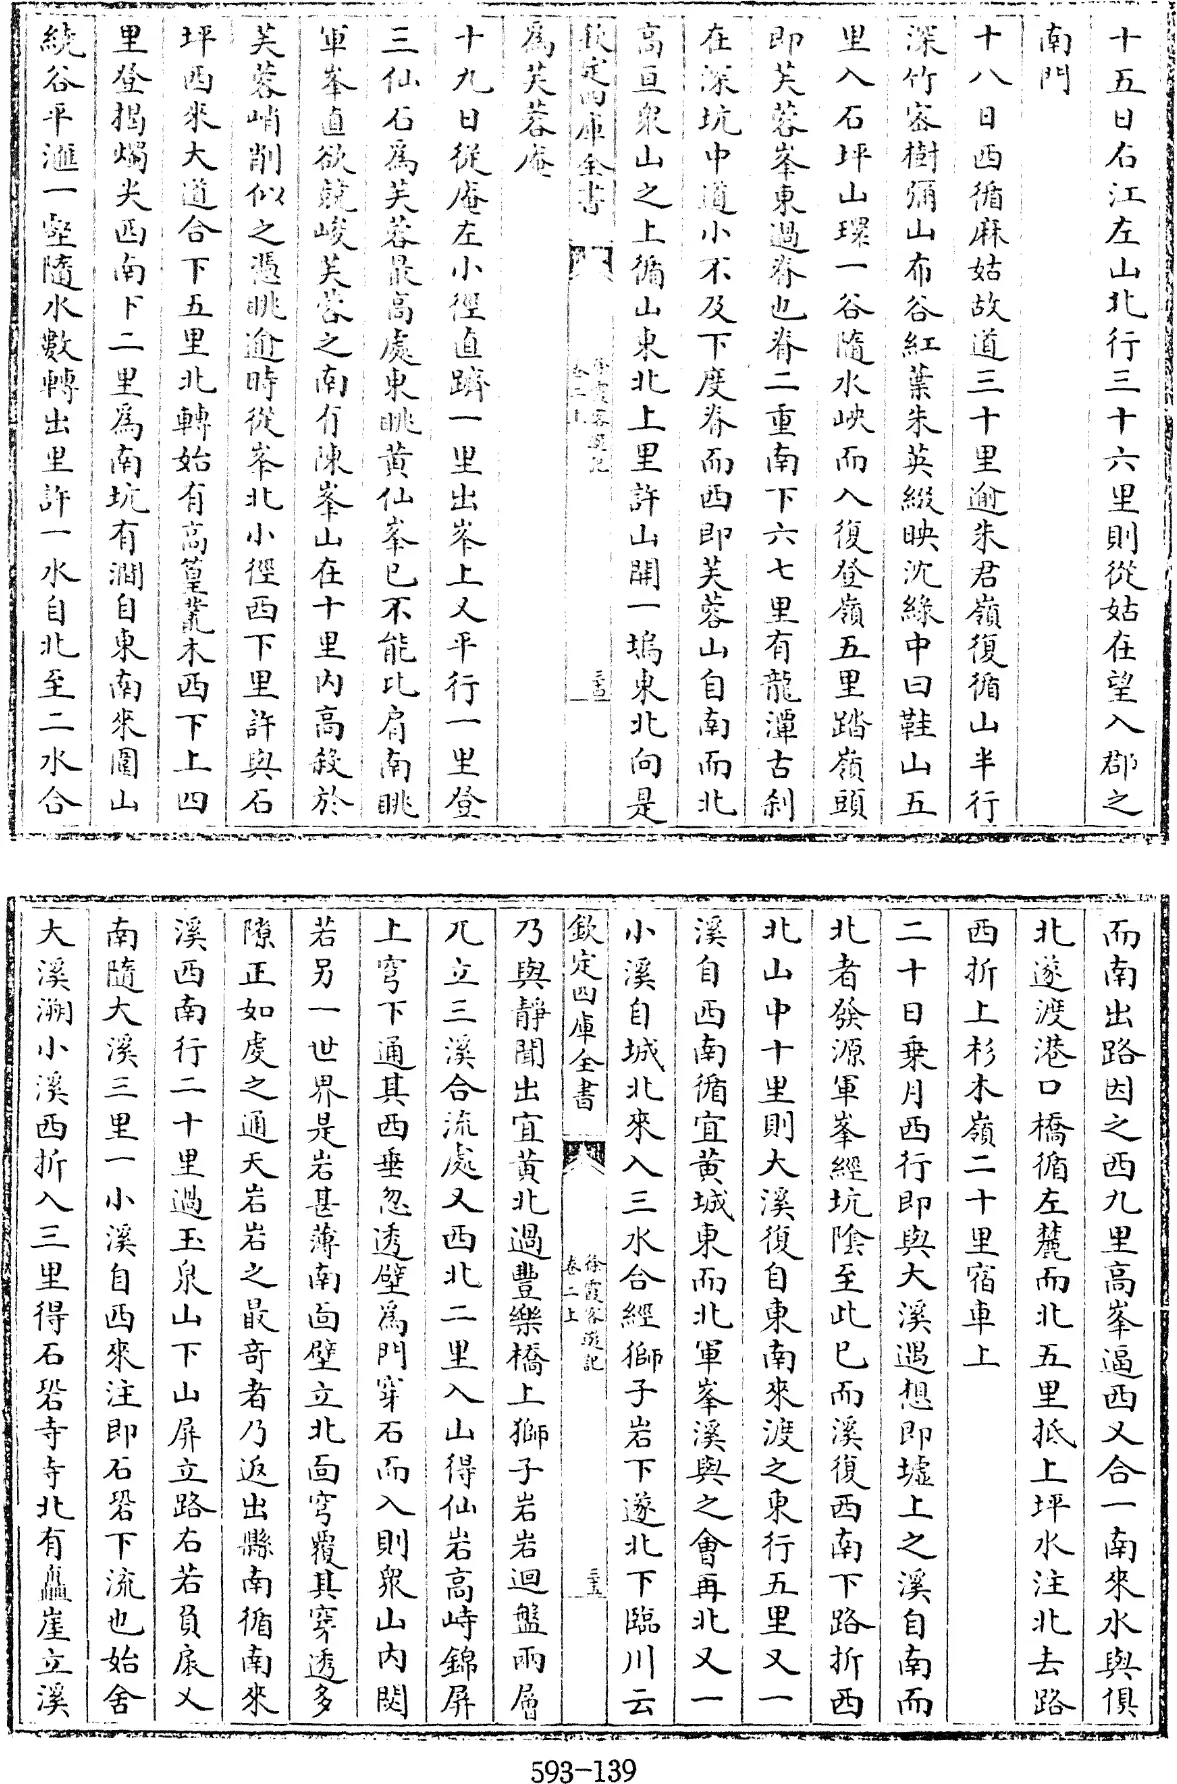 十五日右江左山北行三十六里則從姑在望入郡之
南門
十八日西循麻姑故道三十里逾朱君嶺復循山半行
深竹密樹彌山布谷紅葉朱英綴映沈綠中曰鞋山五
里入石坪山環一谷隨水峽而入復登嶺五里踏嶺頭
即芙蓉峯東過脊也脊二重南下六七里有龍潭古刹
在深坑中道小不及下度脊而西即芙蓉山自南而北
高亘衆山之上循山東北上里許山開一塢東北向是
欽定四庫全書
徐霞客遊記
卷二上
三五
爲芙蓉庵
十九日從庵左小徑直躋一里出峯上又平行一里登
三仙石爲芙蓉最高處東眺黃仙峯已不能比肩南眺
軍峯直欲競峻芙蓉之南有陳峯山在十里内高殺於
芙蓉峭削似之憑眺逾時從峯北小徑西下里許與石
坪西來大道合下五里北轉始有高篁叢木西下上四
里登揭燭尖西南下二里爲南坑有澗自東南來圍山
繞谷平滙一壑隨水數轉出里許一水自北至二水合
而南出路因之西九里高峯逼西又合一南來水與俱
北遂渡港口橋循左麓而北五里抵上坪水注北去路
西折上杉木嶺二十里宿車上
二十日乗月西行即與大溪遇想即墟上之溪自南而
北者發源軍峯經坑陰至此已而溪復西南下路折西
北山中十里則大溪復自東南來渡之東行五里又一
溪自西南循宜黃城東而北軍峯溪與之會再北又一
小溪自城北來入三水合經獅子岩下遂北下臨川云
欽定四庫全書
徐霞客遊記
卷二上
三五
乃與靜聞出宜黃北過豐樂橋上獅子岩岩迴盤兩層
兀立三溪合流處又西北二里入山得仙岩高峙錦屏
上穹下通其西垂忽透壁爲門穿石而入則衆山内閟
若另一世界是岩甚薄南面壁立北面穹覆其穿透多
隙正如處之通天岩岩之最奇者乃返出縣南循南來
溪西南行二十里過玉泉山下山屏立路右若負扆又
南隨大溪三里一小溪自西來注即石㲄下流也始舍
大溪溯小溪西折入三里得石㲄寺寺北有矗崖立溪
593-139